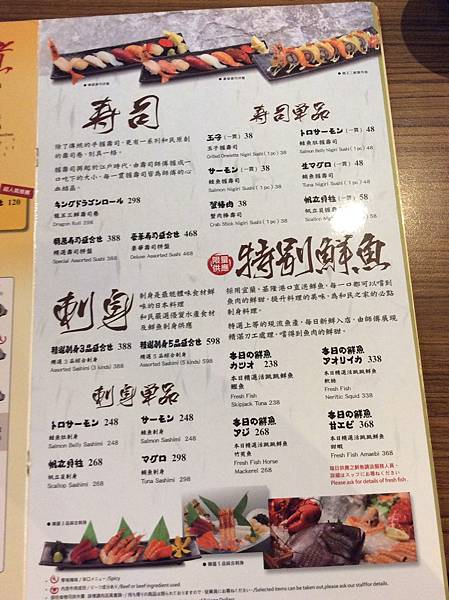 寿司
除了傳統的手握壽司，更有一系列和民原創
的壽司卷，別具一格。
握壽司興起於江戶時代，由壽司師傅握成一
口吃下的大小，每一貫握壽司皆為師傅的心
血結晶。
キングドラゴンロール 298
龍王三鮮壽司卷
Dragon Roll 298
精選壽司盛合せ 388
精選壽司拼盤
Special Assorted Sushi 388
豪華寿司盛合せ 468
豪華壽司拼盤
Deluxe Assorted Sushi 468
寿司單品
玉子(一貫) 38
玉子握壽司
Grilled Omelette Nigiri Sushi ( 1 pc ) 38
サーモン(一貫) 38
鮭魚握壽司
Salmon Nigiri Sushi ( 1 pc ) 38
蟹棒肉 38
蟹肉棒壽司
Crab Stick Nigiri Sushi ( 1 pc ) 38
トロサーモン(一貫) 48
鮭魚肚握壽司
Salmon Belly Nigiri Sushi ( 1 pc ) 48
生マグロ(一貫) 48
鮪魚握壽司
Tuna Nigiri Sushi ( 1 pc ) 48
帆立貝柱(一貫) 58
帆立貝握壽司
Scallop Nigiri Sushi ( 1 pc ) 58
刺身
刺身是最能體味食材鮮
味的日本料理
和民嚴選優質水產食材
及鮮魚刺身供應
精選刺身3品盛合せ 388
精選3品綜合刺身
Assorted Sashimi (3 kinds) 388
精選刺身5品盛合せ 598
精選5品綜合刺身
Assorted Sashimi (5 kinds) 598
刺身單品
トロサーモン 248
鮭魚肚刺身
Salmon Belly Sashimi 248
サーモン 248
鮭魚刺身
Salmon Sashimi 248
帆立貝柱 268
帆立貝刺身
Scallop Sashimi 268
マグロ 298
鮪魚刺身
Tuna Sashimi 298
限量
供應
特別鮮魚
採用宜蘭、基隆港口直送鮮魚，每一口都可以嚐到
魚肉的鮮甜，提升料理的美味，為和民之家的必點
刺身料理。
特選上等的現流魚產，每日新鮮入店，由師傅展現
精湛刀工處理，嚐得到魚肉的鮮甜。
本日の鮮魚
カツオ 238
本日精選活跳跳鮮魚
鰹魚
Fresh Fish
Skipjack Tuna 238
本日の鮮魚
アオリイカ 338
本日精選活跳跳鮮魚
軟絲
Fresh Fish
Neritic Squid 338
本日の鮮魚
アジ 268
本日精選活跳跳鮮魚
竹筴魚
Fresh Fish Horse
Mackerel 268
本日の鮮魚
甘エビ 368
本日精選活跳跳鮮魚
甜蝦
Fresh Fish Amaebi 368
每日供應之鮮魚請洽服務人員。
詳細はスタッフにお尋ねください
Please ask for details of fresh fish.
精選3品綜合刺身
精選5品綜合刺身
超人氣推薦
120
/Spicy
/Beef or beef ingredient used.
/Selected items can be taken out,please ask staff for details.